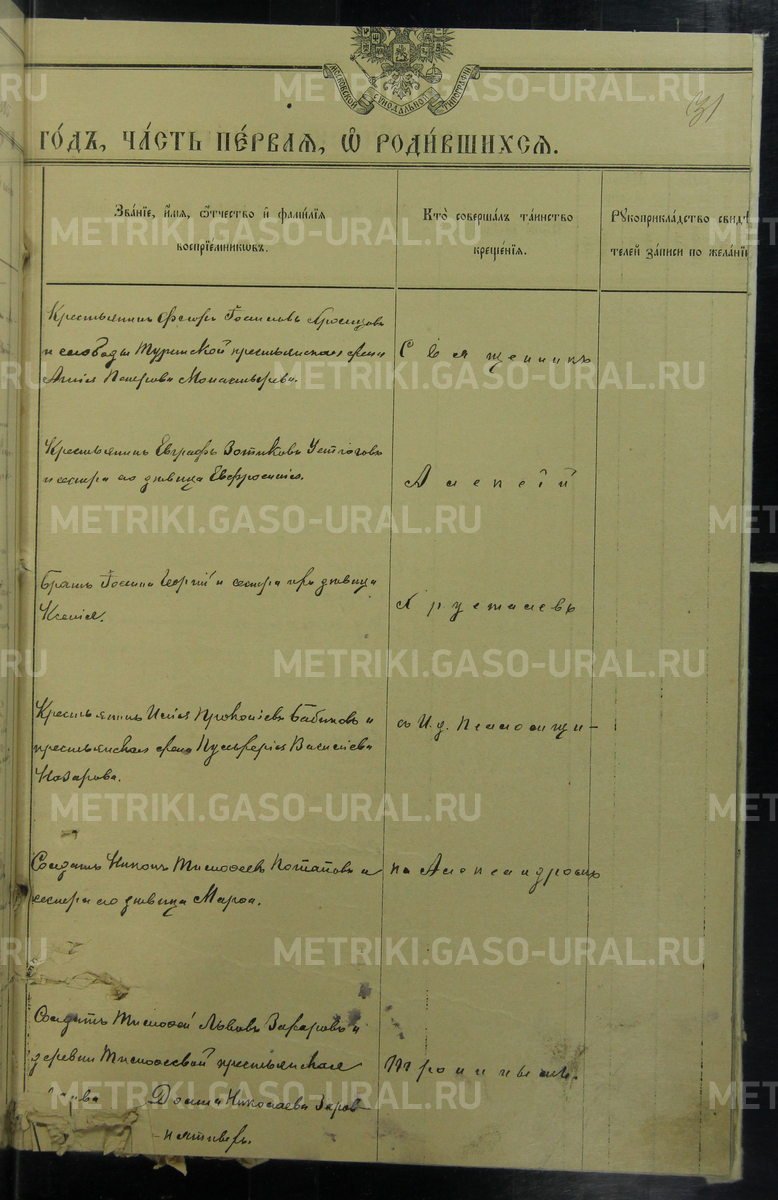 МОСКОВСКОЙ СѴНОДАЛЬНОЙ ТИПОГРАФІИ
31
ГО́ДЪ, ЧА́СТЬ ПЕ́РВАѦ, Ѿ РОДИ́ВШИХСѦ.
Зва́нїе, и҆́мѧ, ѻ҆́тчество и҆ фами́лїѧ
воспрїе́мникѡвъ.
Кто̀ соверша́лъ та́инство
креще́нїѧ.
Рꙋкоприкла́дство свидѣ́
телей за́писи по жела́нїю
Крестьянинъ Ѳеодоръ
и слободы Туринской крестьянская жена
Петрова Монастырева.
Священникъ
Крестьянинъ Евграфъ Зотиковъ Устюговъ
и сестра его дѣвица Евфросинія.
Алексѣй
Братъ Георгій и сестра дѣвица
Ксенія.
Хрусталевъ
Крестьянинъ Илія Прокопіевъ Бабиновъ и
крестьянская жена Пульхерія Васильева
Назарова.
съ И. д. Псаломщи-
Солдатъ Никонъ Тимоѳеевъ Потаповъ и
сестра его дѣвица Марѳа.
ка Александромъ
Солдатъ Тимоѳей Львовъ Захаровъ и
деревни Тимоѳеевой крестьянская
Николаева
Троицкимъ.
METRIKI.GASO-URAL.RU